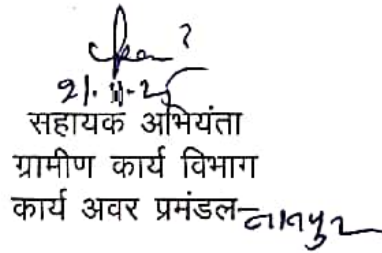 21.11.25
सहायक अभियंता
ग्रामीण कार्य विभाग
कार्य अवर प्रमंडल-